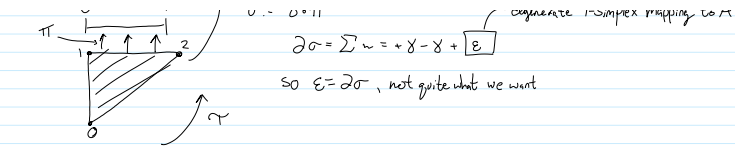 degenerate 1-simplex mapping to
π
1
2
∂σ = Σ ~ = + γ - γ + ε
so ε = ∂σ, not quite what we want
τ
0